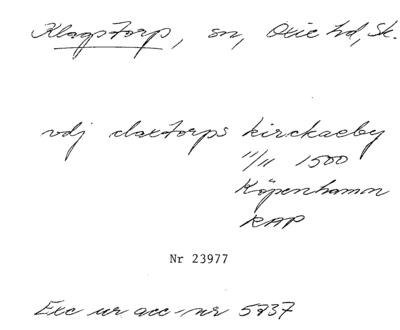 Klagstorp, sn, Oxie hd, Sk.
vdj claxtorps kirckaeby
11/11 1500
Köpenhamn
RAP
Nr 23977
Exc ur acc-nr 5837